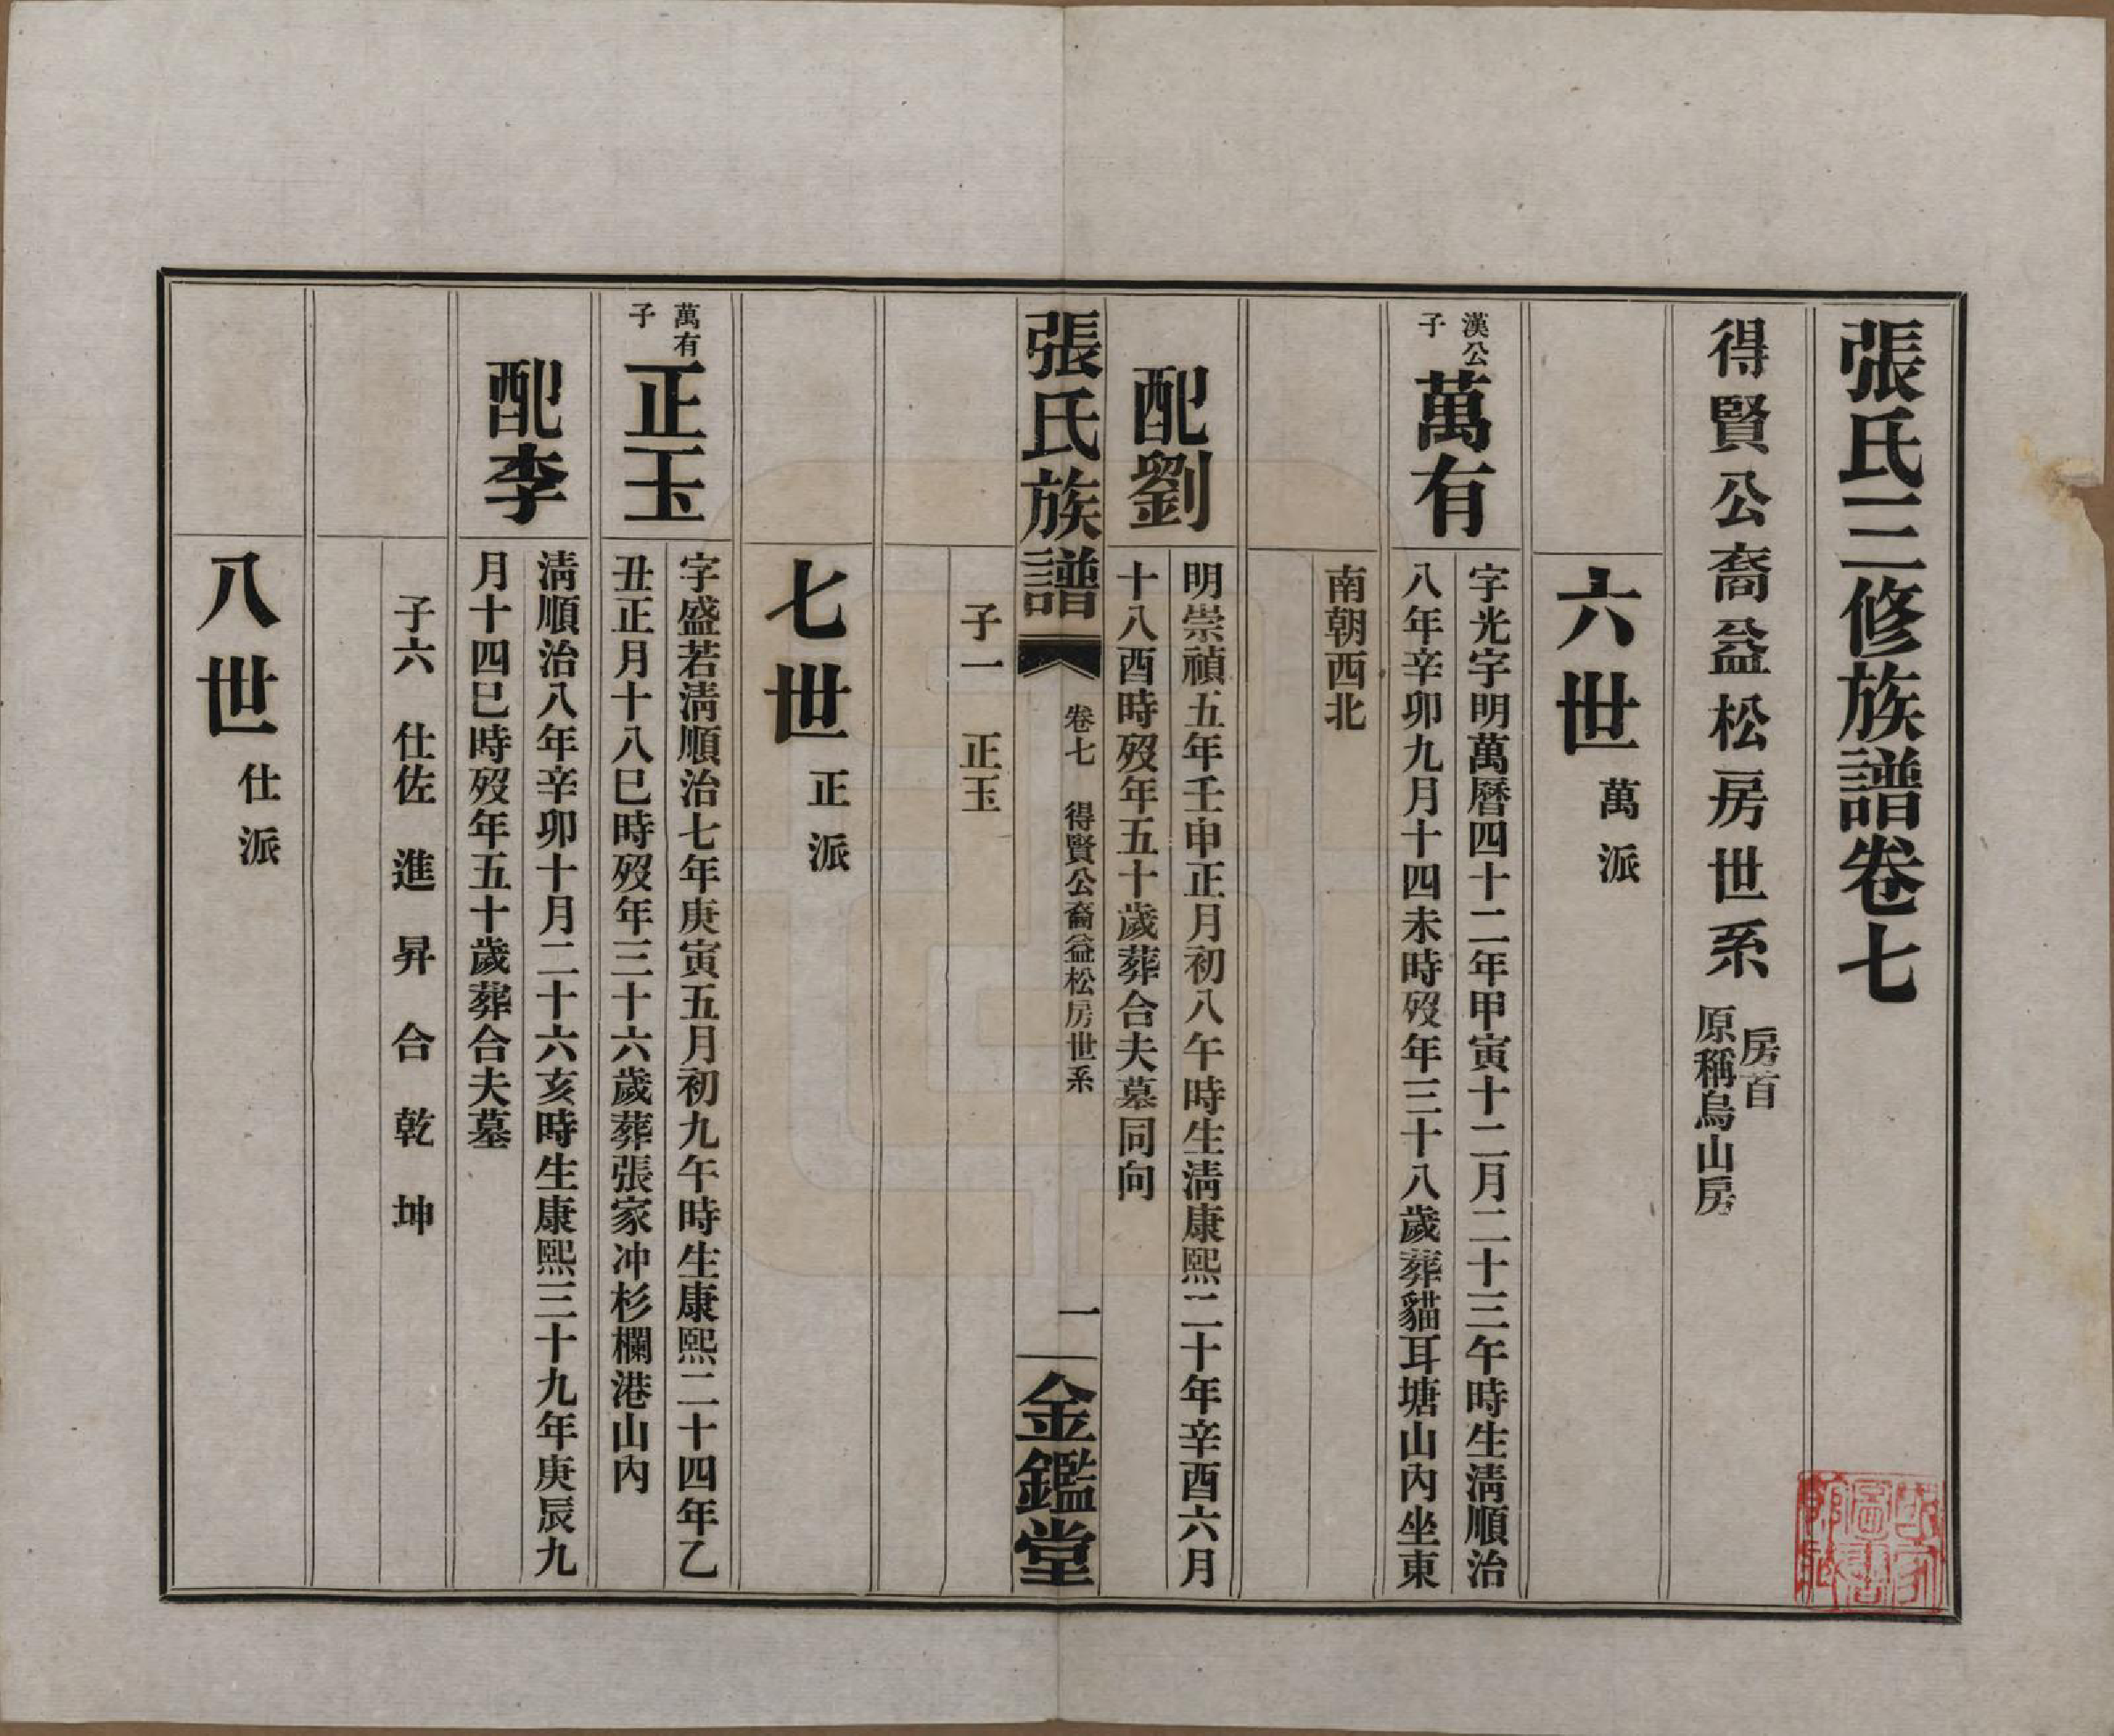 張氏三修族譜卷七
得賢公裔益松房世系
房首
原稱烏山房
六世 萬派
漢公
子
萬有
字光宇明萬曆四十二年甲寅十二月二十三午時生淸順治
八年辛卯九月十四未時歿年三十八歲葬貓耳塘山內坐東
南朝西北
配劉
明崇禎五年壬申正月初八午時生淸康熙二十年辛酉六月
十八酉時歿年五十歲葬合夫墓同向
張氏族譜
卷七 得賢公裔益松房世系
一
金鑑堂
子一 正玉
七世 正派
萬有
子
正玉
字盛若淸順治七年庚寅五月初九午時生康熙二十四年乙
丑正月十八巳時歿年三十六歲葬張家冲杉欄港山內
配李
淸順治八年辛卯十月二十六亥時生康熙三十九年庚辰九
月十四巳時歿年五十歲葬合夫墓
子六 仕佐 進 昇 合 乾 坤
八世 仕派